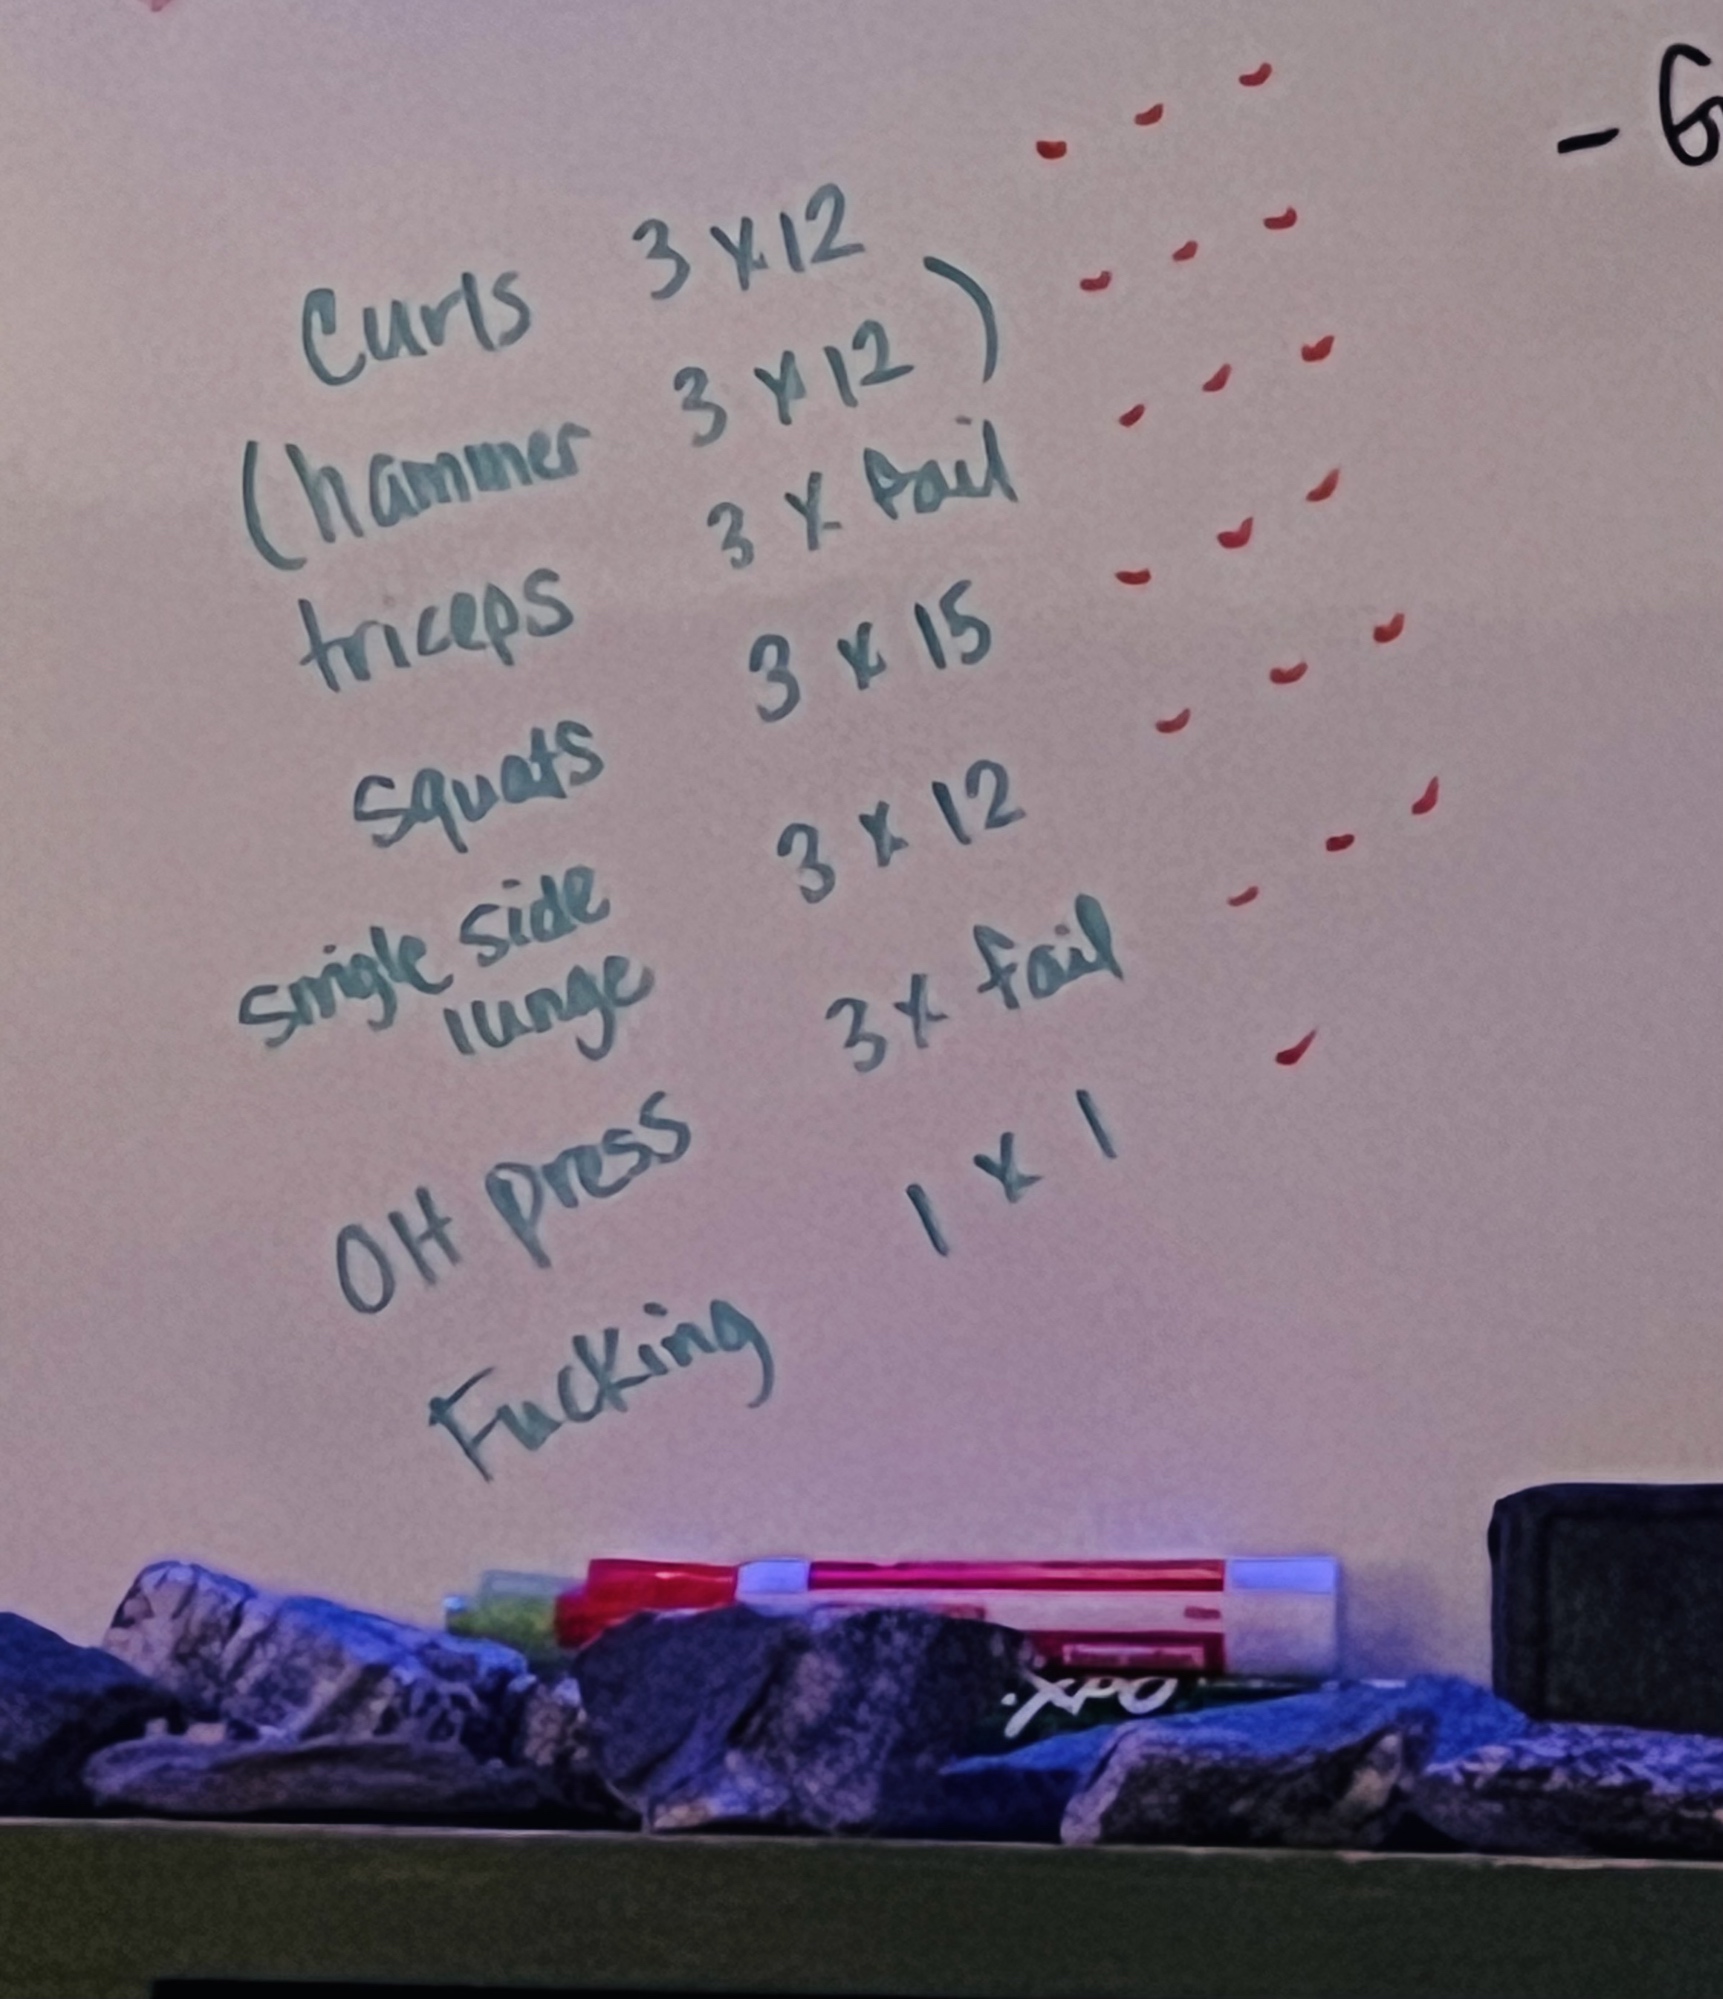 Curls 3 x 12
(hammer 3 x 12)
triceps 3 x fail
squats 3 x 15
single side
lunge 3 x 12
OH press 3 x fail
Fucking 1 x 1
- G
XPO